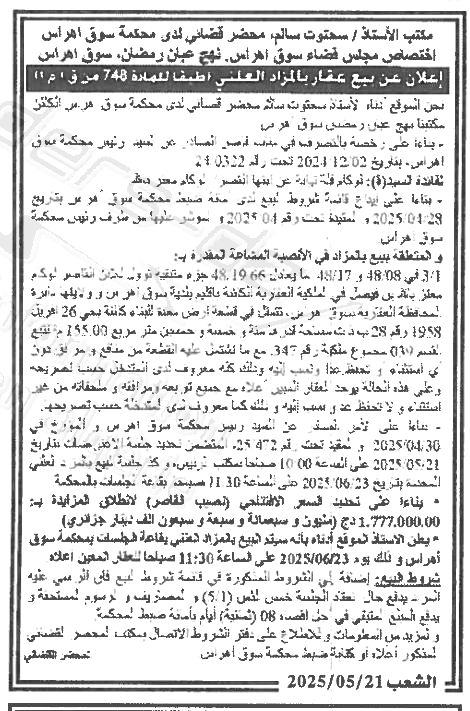 مكتب الأستاذ / سحتوت سالم، محضر قضائي لدى محكمة سوق اهراس
اختصاص مجلس قضاء سوق اهراس. نهج عبان رمضان، سوق اهراس
إعلان عن بيع عقار بالمزاد العلني (طبقا للمادة 748 من ق إ م إ)
نحن الموقع أدناه الأستاذ سحتوت سالم محضر قضائي لدى محكمة سوق اهراس الكائن
مكتبنا بنهج عبان رمضان سوق اهراس
- بناءا على رخصة بالتصرف في قاصر الصادر عن السيد رئيس محكمة سوق
اهراس، بتاريخ 2024/12/02 تحت رقم 24/0322
لفائدة السيد(ة): نيابة عن ابنها القاصر
- بناءا على إيداع قائمة شروط البيع لدى أمانة ضبط محكمة سوق أهراس بتاريخ
2025/04/28 و المقيدة تحت رقم 2025/04 و المؤشر عليها من طرف رئيس محكمة
سوق أهراس
و المتعلقة ببيع بالمزاد في الأنصبة المشاعة المقدرة بـ:
3/1 أي 48/08 و 48/17 ما يعادل 48.19.66 جزء
بلدية سوق اهراس و ولايتها دائرة
المحافظة العقارية سوق اهراس، تتمثل في قطعة ارض معدة للبناء كائنة بحي 26 افريل
1958 رقم 28 ذات مساحة قدرها مئة و خمسة و خمسين متر مربع 155.00 م
قسم 039 مجموع ملكية رقم 347 مع ما تشتمل عليه القطعة من منافع و مرافق دون
أي استثناء و تحفظ حسب تصريحه
وعلى هذه الحالة يوجد العقار المبين أعلاه مع جميع توابعه ومرافقه و ملحقاته من غير
استثناء و لا تحفظ حسب تصريحها.
- بناءا على الأمر الصادر عن السيد رئيس محكمة سوق أهراس و المؤرخ في
2025/04/30 و المقيد تحت رقم 25/472، المتضمن تحديد جلسة الاعتراضات بتاريخ
2025/05/21 على الساعة 10:00 صباحا بمكتب الرئيس، و كذا جلسة البيع بالمزاد العلني
المحددة بتاريخ 2025/06/23 على الساعة 11:30 صباحا بقاعة الجلسات بالمحكمة
* بناءا على تحديد السعر الافتتاحي (نصيب القاصر) لانطلاق المزايدة بـ:
1.777.000.00 دج (مليون و سبعمائة و سبعة و سبعون ألف دينار جزائري)
* يعلن الأستاذ الموقع أدناه بأنه سيتم البيع بالمزاد العلني بقاعة الجلسات بمحكمة سوق
أهراس و ذلك يوم 2025/06/23 على الساعة 11:30 صباحا للعقار المعين اعلاه
شروط البيع: إضافة إلى الشروط المذكورة في قائمة شروط البيع فإن الراسي عليه
المزاد يدفع حال انعقاد الجلسة خمس الثمن (5/1) و المصاريف و الرسوم المستحقة و
يدفع المبلغ المتبقي في أجل أقصاه 08 (ثمانية) أيام بأمانة ضبط المحكمة.
و للمزيد من المعلومات وللاطلاع على دفتر الشروط الاتصال بمكتب المحضر القضائي
المذكور أعلاه أو كتابة ضبط محكمة سوق أهراس
المحضر القضائي
الشعب 2025/05/21